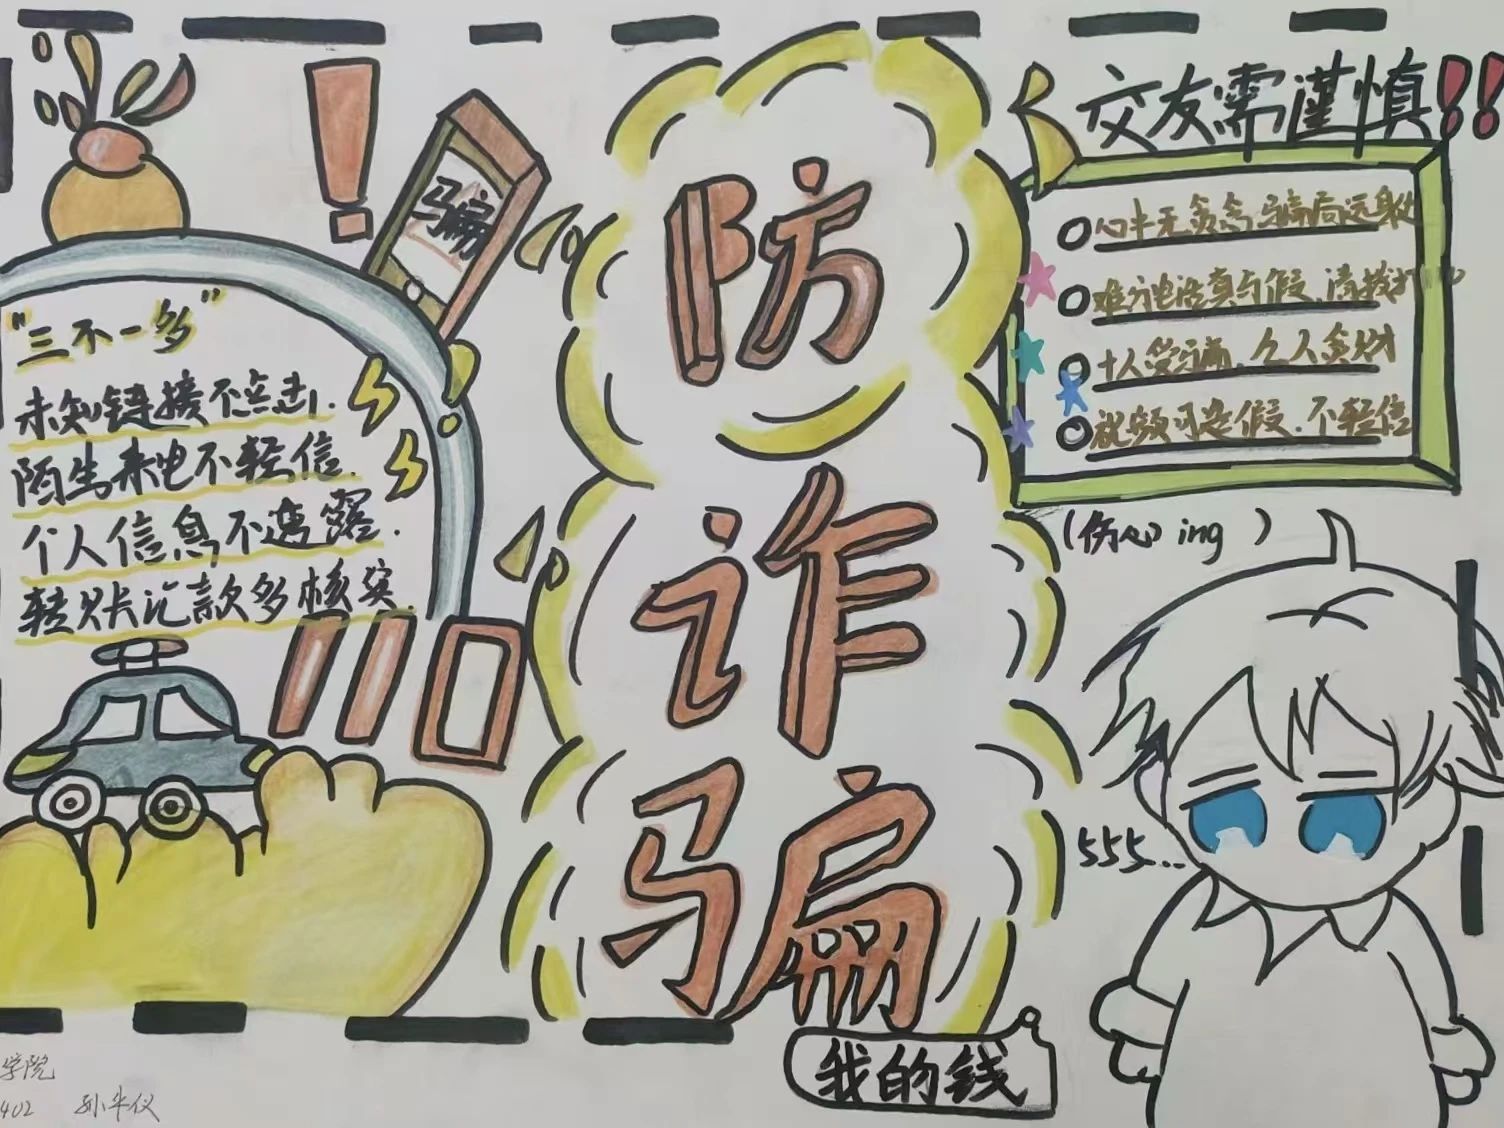 交友需谨慎!!
心中无贪念,骗局远身边
难分电话真与假,请拨打110
个人贪财
视频可造假,不轻信
骗
防
诈
骗
"三不一多"
未知链接不点击.
陌生来电不轻信.
个人信息不透露.
转账汇款多核实.
110
(伤心ing)
555...
我的钱
学院
402